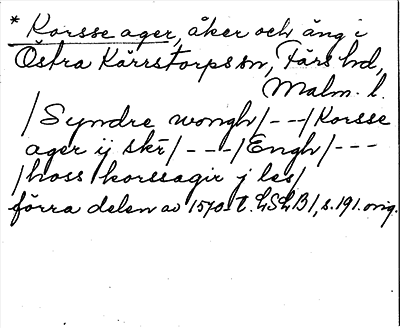 * Korsse ager, åker och äng i
Östra Kärrstorps sn, Färs hd,
Malm. l.
/Syndre wongh/---/Korsse
ager ij skr/---/Engh/---
/hoss korssagir j les/
förra delen av 1570-t. LSLB1, s.191. orig.